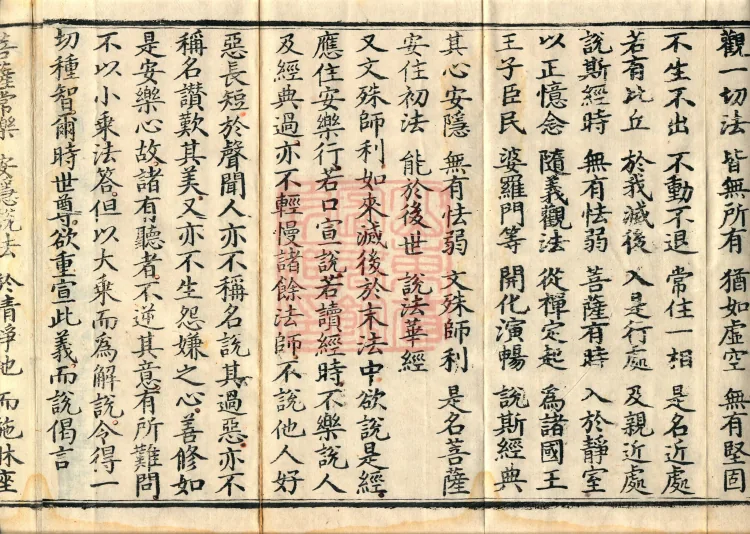 觀一切法 皆無所有 猶如虛空 無有堅固
不生不出 不動不退 常住一相 是名近處
若有比丘 於我滅後 入是行處 及親近處
說斯經時 無有怯弱 菩薩有時 入於靜室
以正憶念 隨義觀法 從禪定起 為諸國王
王子臣民 婆羅門等 開化演暢 說斯經典
其心安隱 無有怯弱 文殊師利 是名菩薩
安住初法 能於後世 說法華經
又文殊師利如來滅後於末法中欲說是經
應住安樂行若口宣說若讀經時不樂說人
及經典過亦不輕慢諸餘法師不說他人好
惡長短於聲聞人亦不稱名說其過惡亦不
稱名讚歎其美又亦不生怨嫌之心善修如
是安樂心故諸有聽者不逆其意有所難問
不以小乘法答但以大乘而為解說令得一
切種智爾時世尊欲重宣此義而說偈言
菩薩常樂 安隱說法 於清淨地 而施牀座